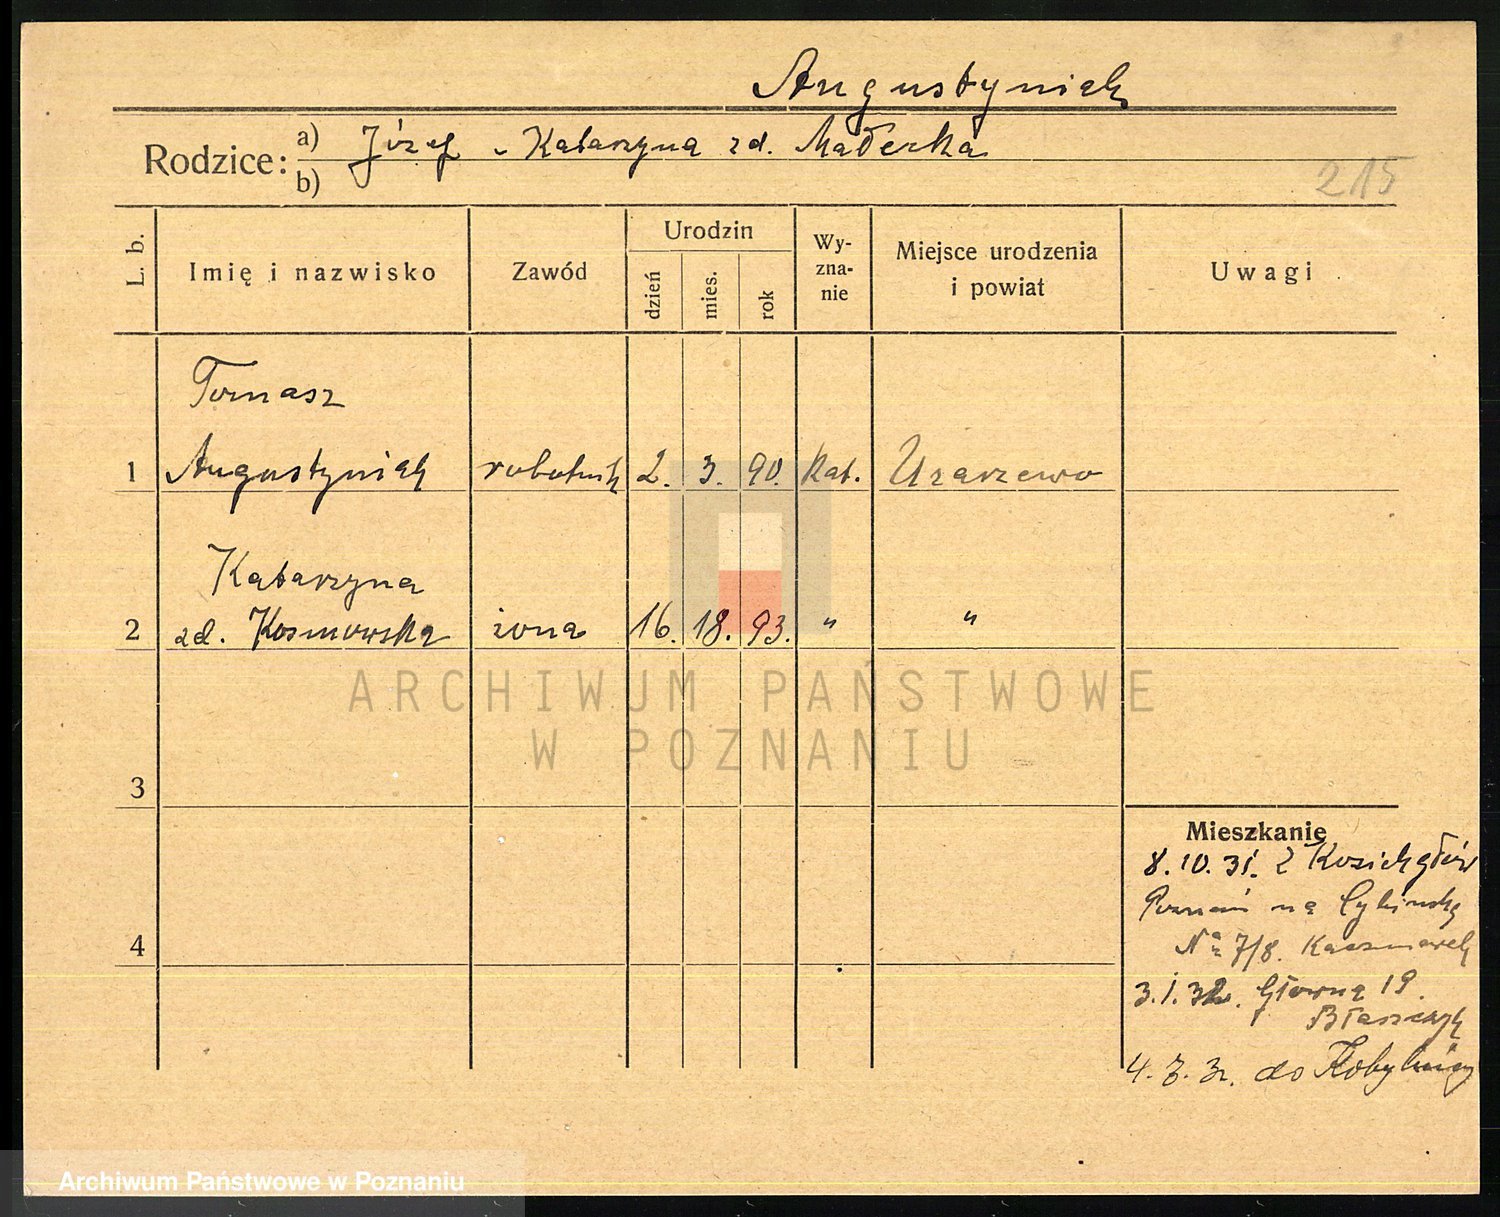 Augustyniak
Rodzice: a) Józef - Katarzyna zd. Małecka
b)
215
L. b.
Imię i nazwisko
Zawód
Urodzin
dzień
mies.
rok
Wy-
zna-
nie
Miejsce urodzenia
i powiat
Uwagi
Tomasz
1 Augustyniak robotnik 2. 3. 90. kat. Uzarzewo
Katarzyna
2 zd. Kosmowska żona 16. 18. 93. " "
ARCHIWUM PAŃSTWOWE
W POZNANIU
3
Mieszkanie
8.10.31. z Kozichgłów
Poznań na Cybinską
№ 7/8. Kaczmarek
4
3.1.32. Główna 19.
Błaszczyk
4.7.32. do Kobylnicy
Archiwum Państwowe w Poznaniu